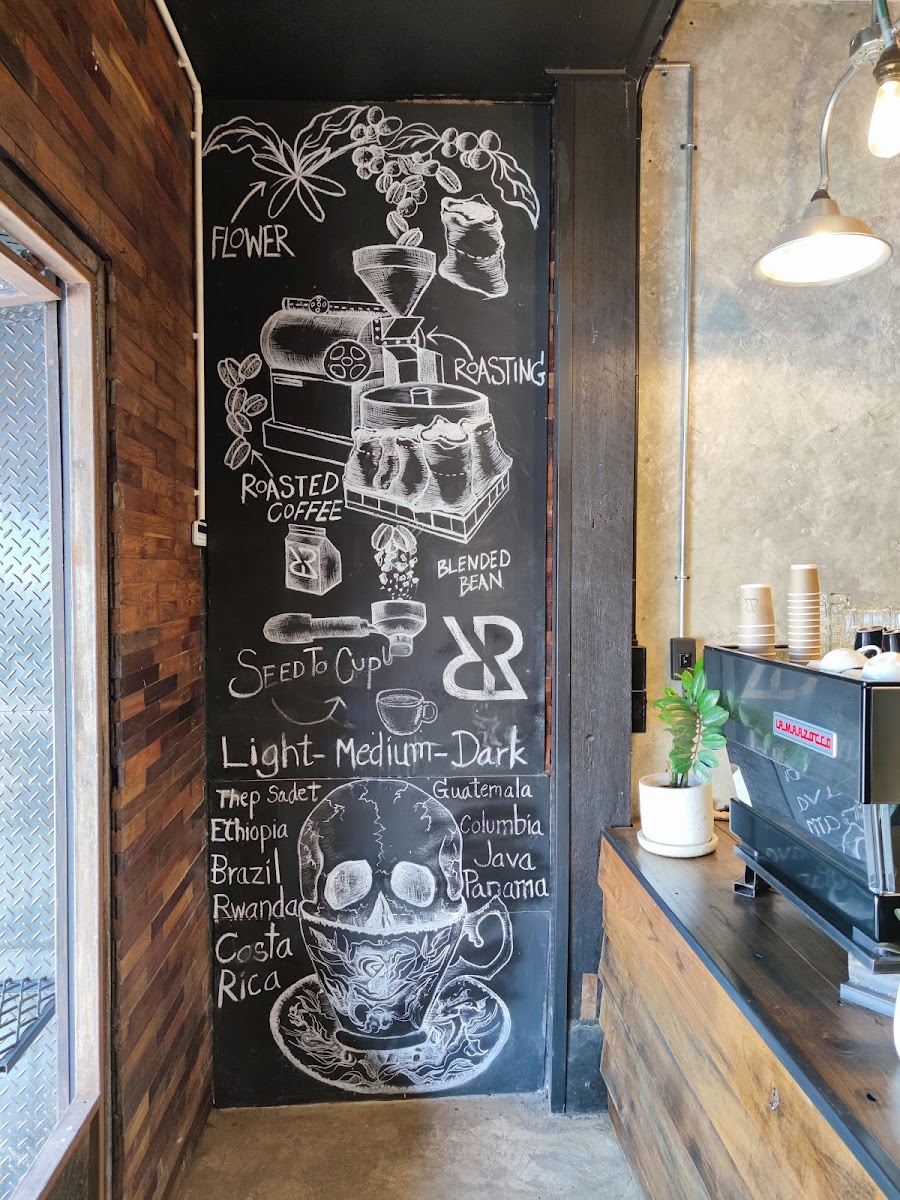 FLOWER
ROASTING
ROASTED
COFFEE
BLENDED
BEAN
SEED TO CUP
Light - Medium - Dark
Thep Sadet
Ethiopia
Brazil
Rwanda
Costa
Rica
Guatemala
Columbia
Java
Panama
LA MARZOCCO